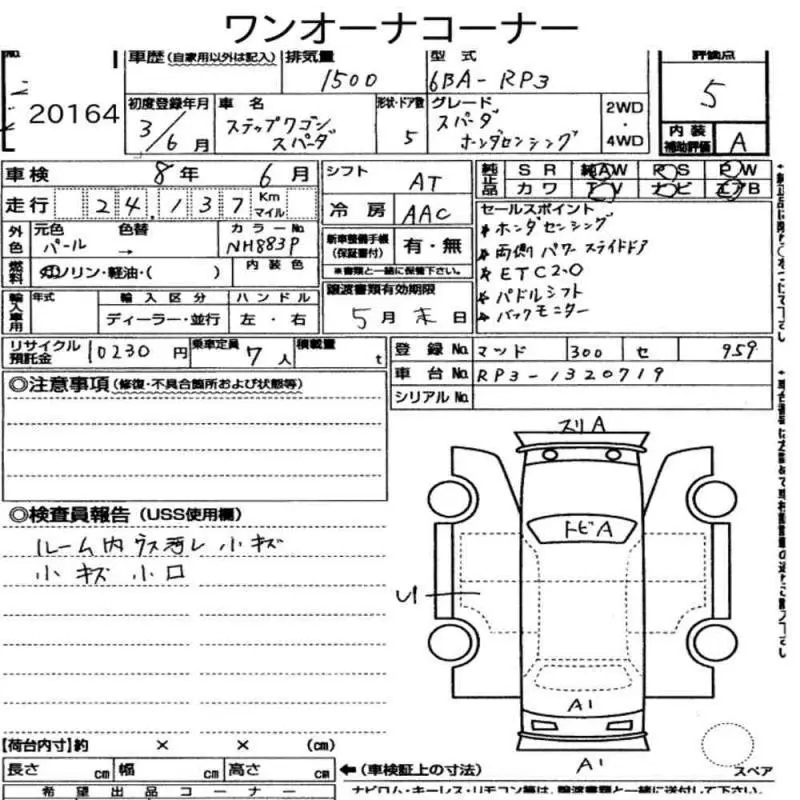 ワンオーナコーナー
No. 車歴(自家用以外は記入) 排気量 型式 評価点
1500 6BA-RP3 5
20164
初度登録年月 車名 形状・ドア数 グレード
3/6月 ステップワゴン スパーダ 5 スパーダ ホンダセンシング 2WD・4WD
内装補助評価 A
車検 8年 6月 シフト AT 純正品 SR 純AW PS PW
走行 24,137 Km マイル 冷房 AAC カワ TV ナビ エアB
外色 元色 色替 カラーNo. 新車整備手帳(保証書付) 有・無 セールスポイント
パール → NH883P ※書類と一緒に保管下さい。 * ホンダセンシング
燃料 ガソリン・軽油・( ) 内装色 * 両側パワースライドドア
輸入車用 年式 輸入区分 ハンドル 譲渡書類有効期限 * ETC2.0
ディーラー・並行 左・右 5月末日 * パドルシフト
* バックモニター
リサイクル預託金 10230円 乗車定員 7人 積載量 t 登録No. 300 セ 959
車台No. RP3-1320719
シリアルNo.
◎注意事項(修復・不具合箇所および状態等)
◎検査員報告(USS使用欄)
ルーム内ウス汚レ 小キズ
小キズ 小凹
スリA
トビA
U1
A1
A1
スペア
【荷台内寸】約 × × (cm)
長さ cm 幅 cm 高さ cm ←(車検証上の寸法)
希望出品コーナー ナビロム・キーレス・リモコン等は、譲渡書類と一緒に送付して下さい。